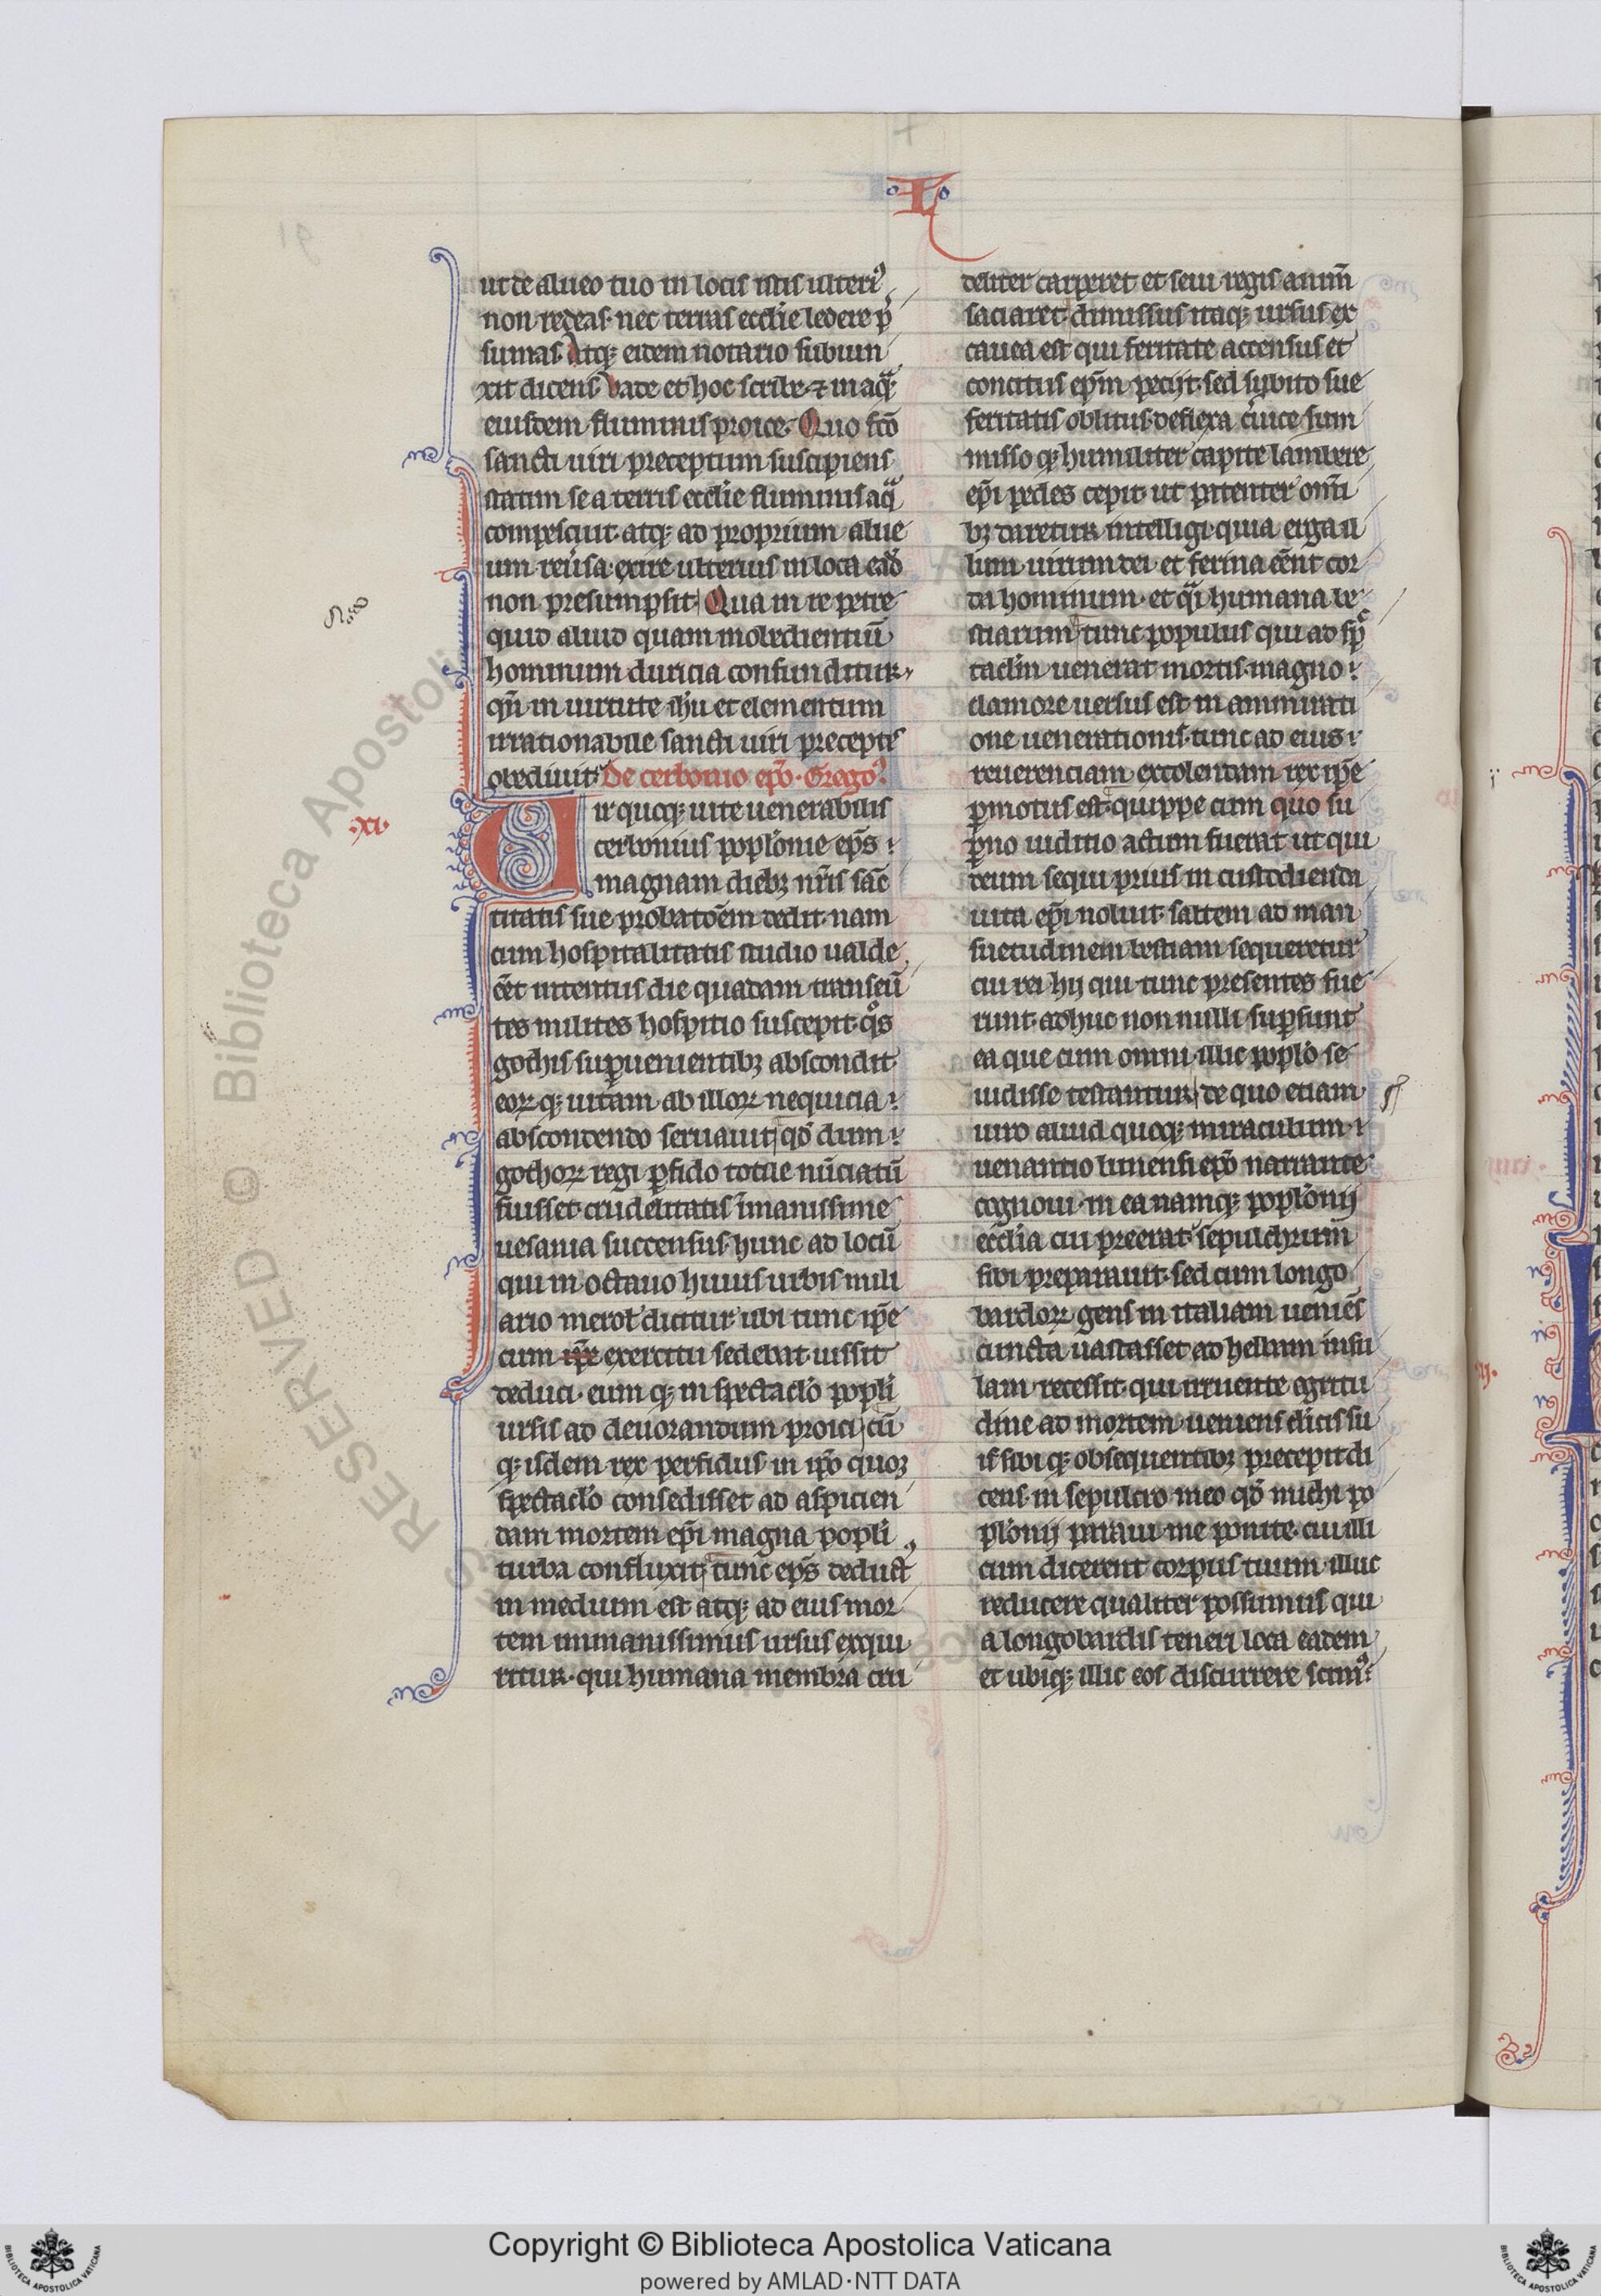 L
ut de alueo tuo in locis istis ulteri⁹
non redeas. nec terras ecclie ledere p̄
sumas. Atq; eidem notario subiun
xit dicens vade et hoc scribe ⁊ in aq̄
eiusdem fluminis proice. Quo fc̄o
sancti uiri preceptum suscipiens
statim se a terris ecclie fluminis aq̄
compescuit. atq; ad proprium alue
um reu̾sa. exire ulterius in loca eadē
non presumpsit. Qua in re petre
quid aliud quam inobedientiū
hominum duricia confunditur.
qn̄ in uirtute ihu et elementum
irrationabile sancti uiri preceptis
obediuit. De cerbonio ep̄o. Grego⁹.
.xi.
Uir quoq; uite uenerabilis
cerbonius poplonie ep̄s
magnam dieb; nr̄is sāc
titatis sue probatōem dedit. nam
cum hospitalitatis studio ualde
eēt intentus die quadam transeū
tes milites hospitio suscepit. qͦs
gothis sup̱uenientib; abscondit
eorꝝ q; uitam ab illorꝝ nequicia
abscondendo seruauit qd̄ dum
gothorꝝ regi p̱fido totile nūciatū
fuisset. crudelitatis īmanissime
uesania succensus. hunc ad locū
qui in octauo huius urbis mili
ario merol' dicitur. ubi tunc ip̄e
cum ip̄e exercitu sedebat. iussit
deduci. eum q; in spectaclō popli
ursis ad deuorandum proici cū
q; isdem rex perfidus in ip̄o quoq;
spectaclō consedisset ad aspicien
dam mortem ep̄i magna popli
turba confluxit. tunc ep̄s deduct⁹
in medium est atq; ad eius mor
tem immanissimus ursus exqui
ritur. qui humana membra cru
deliter carperet et seui regis animū
saciaret. dimissus itaq; ursus ex
cauea est qui feritate accensus et
concitus ep̄m peciit. sed subito sue
feritatis oblitus. deflexa c̾uice sum
misso q; humiliter capite lambere
ep̄i pedes cepit. ut patenter om̄i
b; daretur intelligi. quia erga il
lum uirum dei et ferina eēnt cor
da hominum. et q̄i humana be
stiarum tunc populus qui ad sp̄
taclm uenerat mortis. magno
clamore uersus est in ammirati
one uenerationis. tunc ad eius
reuerenciam extolendam rex ip̄e
p̱motus est. quippe cum quo su
p̱no iuditio actum fuerat ut qui
deum sequi prius in custodienda
uita ep̄i noluit. saltem ad man
suetudinem bestiam sequeretur
cui rei hij qui tunc presentes fue
runt. adhuc non nulli sup̱sunt
ea que cum omni illic poplo se
uidisse testantur de quo etiam
uiro aliud quoq; miraculum
uenantio lunensi ep̄o narrante
cognoui. in ea namq; poplonij
ecclia cui preerat sepulchrum
sibi preparauit. sed cum longo
bardorꝝ gens in italiam ueniēs
cuncta uastasset ad helbam insu
lam recessit. qui irruente egritu
dine ad mortem ueniens clicis su
is sibi q; obsequentib; precepit di
cens. in sepulcro meo qd̄ michi po
plonij paraui me ponite. cui illi
cum dicerent corpus tuum illuc
reducere qualiter possumus qui
a longobardis teneri loca eadem
et ubiq; illic eos discurrere scim⁹
Copyright © Biblioteca Apostolica Vaticana
powered by AMLAD·NTT DATA